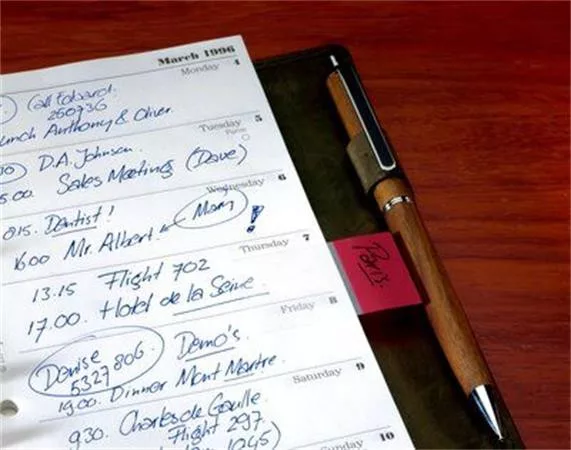 March 1996
Monday 4
Call Edward.
250736
Lunch Anthony & Oliver
Tuesday 5
D.A. Johnson.
5.00. Sales Meeting (Dave)
Wednesday 6
815. Dentist!
Mam
1600 Mr. Albert. !
Thursday 7
13.15 Flight 702
17.00. Hotel de la Seine
Paris.
Friday 8
Denise
5327806.
Demo's.
1900. Dinner Mont Martre.
Saturday 9
930. Charles de Gaulle.
Flight 297.
1245)
Sunday 10